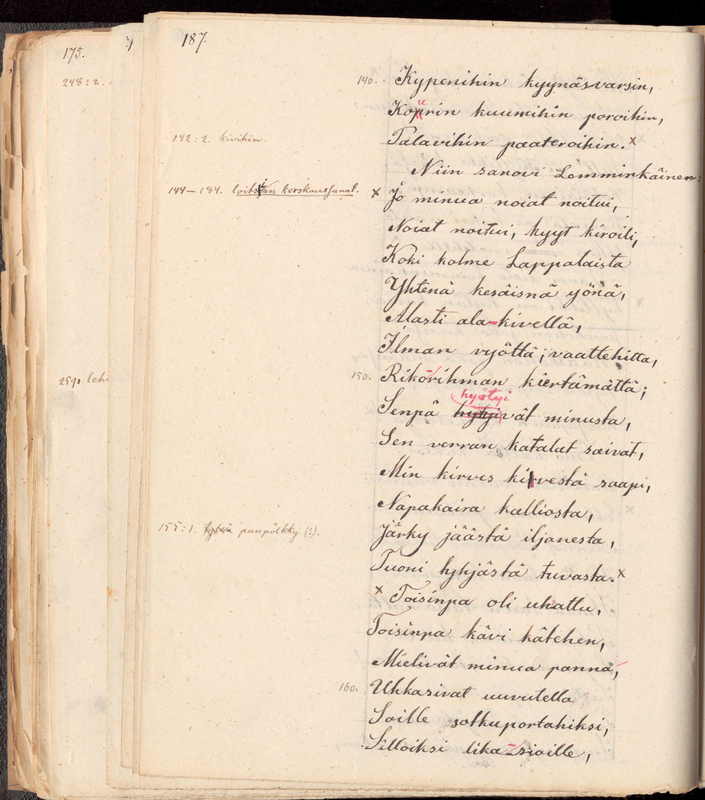 175.
187.
248:2.
140. Kypenihin kyynäsvarsin,
Kourin kuumihin poroihin,
142:2. kivihin.
Palavihin paateroihin. x
Niin sanovi Lemminkäinen:
144–184. loitsun kerskaussanat.
x Jo minua noiat noitui,
Noiat noitui, kyyt kiroili,
Koki kolme Lappalaista
Yhtenä kesäisnä yönä,
Alasti ala-kivellä,
Ilman vyöttä, vaattehitta,
259: leh
150. Rikorihman kiertämättä;
hyötyi
Senpä hyötyivät minusta,
Sen verran katalat saivat,
Min kirves kivestä saapi,
Napakaira kalliosta,
155:1. puupölkky (?).
Järky jäästä iljanesta,
Tuoni tyhjästä tuvasta. x
x Toisinpa oli uhattu,
Toisinpa kävi kätehen,
Mielivät minua panna,
160. Uhkasivat uuvutella
Soille sotkuportahiksi,
Silloiksi lika-sioille,